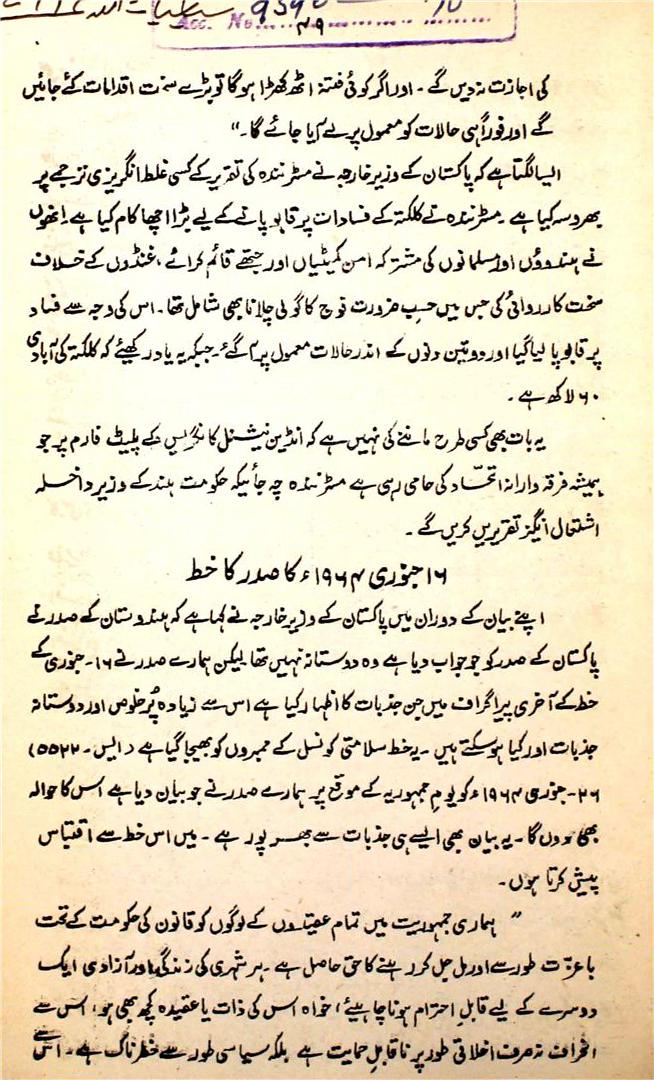 9590
Acc. No.
۴۹
کی اجازت نہ دیں گے۔ اور اگر کوئی فتنہ اٹھ کھڑا ہوگا تو بڑے سخت اقدامات کئے جائیں
گے اور فوراً ہی حالات کو معمول پر لے آیا جائے گا۔"
ایسا لگتا ہے کہ پاکستان کے وزیر خارجہ نے مسٹر نندہ کی تقریر کے کسی غلط انگریزی ترجمے پر
بھروسہ کیا ہے۔ مسٹر نندہ نے کلکتہ کے فسادات پر قابو پانے کے لیے بڑا اچھا کام کیا ہے۔ انھوں
نے ہندوؤں اور مسلمانوں کی مشترکہ امن کمیٹیاں اور جتھے قائم کرائے، غنڈوں کے خلاف
سخت کارروائی کی جس میں حسبِ ضرورت فوج کا گولی چلانا بھی شامل تھا۔ اس کی وجہ سے فساد
پر قابو پا لیا گیا اور دو تین دنوں کے اندر حالات معمول پر آ گئے۔ جبکہ یہ یاد رکھیئے کہ کلکتہ کی آبادی
۶۰ لاکھ ہے۔
یہ بات بھی کسی طرح ماننے کی نہیں ہے کہ انڈین نیشنل کانگریس کے پلیٹ فارم پر جو
ہمیشہ فرقہ وارانہ اتحّاد کی حامی رہی ہے مسٹر نندہ چہ جائیکہ حکومت ہند کے وزیر داخلہ
اشتعال انگیز تقریریں کریں گے۔
۱۶ جنوری ۱۹۶۴ء کا صدر کا خط
اپنے بیان کے دوران میں پاکستان کے وزیر خارجہ نے کہا ہے کہ ہندوستان کے صدر نے
پاکستان کے صدر کو جو جواب دیا ہے وہ دوستانہ نہیں تھا لیکن ہمارے صدر نے ۱۶۔ جنوری کے
خط کے آخری پیراگراف میں جن جذبات کا اظہار کیا ہے اس سے زیادہ پُر خلوص اور دوستانہ
جذبات اور کیا ہو سکتے ہیں۔ یہ خط سلامتی کونسل کے ممبروں کو بھیجا گیا ہے (ایس۔ ۵۵۲۲)
۲۶۔ جنوری ۱۹۶۴ء کو یوم جمہوریہ کے موقع پر ہمارے صدر نے جو بیان دیا ہے اس کا حوالہ
بھی دوں گا۔ یہ بیان بھی ایسے ہی جذبات سے بھرپور ہے۔ میں اس خط سے اقتباس
پیش کرتا ہوں۔
" ہماری جمہوریت میں تمام عقیدوں کے لوگوں کو قانون کی حکومت کے تحت
با عزّت طور سے اور مل جل کر رہنے کا حق حاصل ہے۔ ہر شہری کی زندگی اور آزادی ایک
دوسرے کے لیے قابلِ احترام ہونا چاہیئے، خواہ اس کی ذات یا عقیدہ کچھ بھی ہو، اس سے
انحراف نہ صرف اخلاقی طور پر ناقابلِ حمایت ہے بلکہ سیاسی طور سے خطرناک ہے۔ اس سے